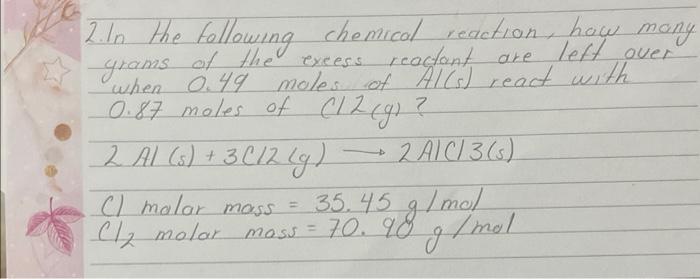 2. In the following chemical reaction, how many
grams of the excess reactant are left over
when 0.49 moles of Al(s) react with
0.87 moles of Cl2(g)?
2 Al (s) + 3Cl2 (g) → 2 AlCl3(s)
Cl molar mass = 35.45 g/mol
Cl2 molar mass = 70.90 g/mol